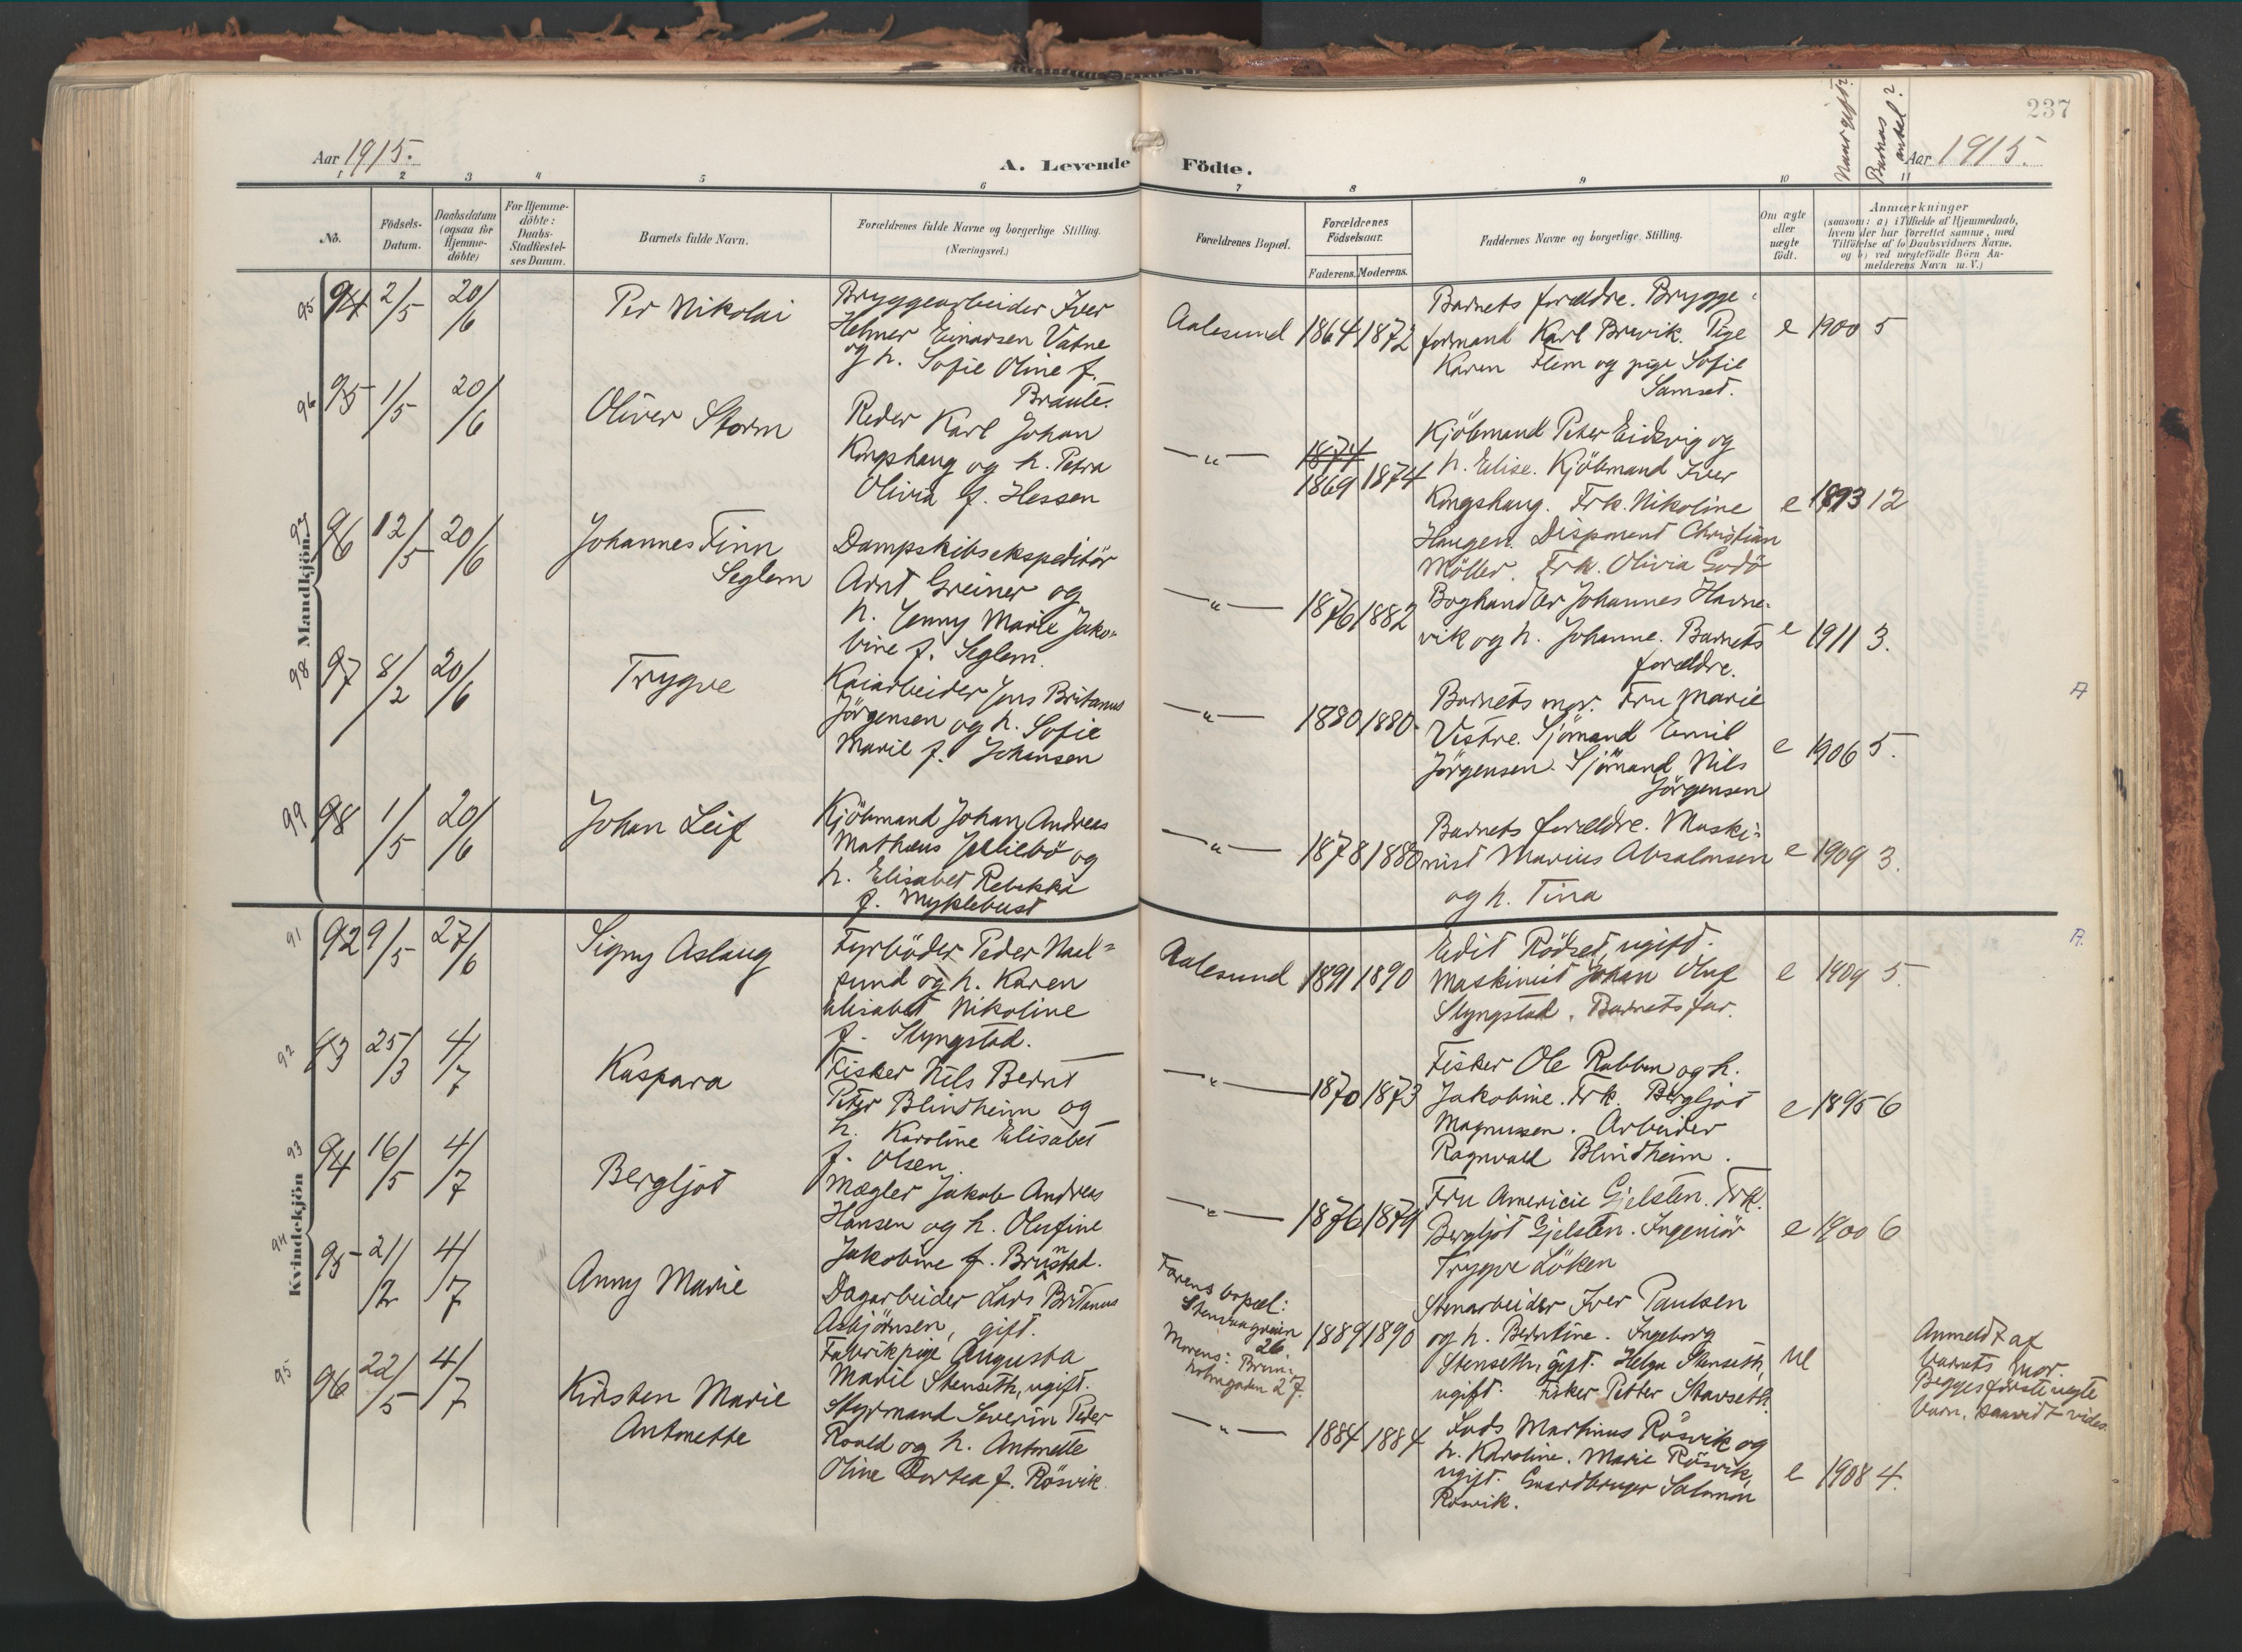 237
Naar gift?
Barnas antal?
Aar 1915.
A. Levende Födte.
Aar 1915.
1 2 3 4 5 6 7 8 9 10 11
No.
Födsels-
Datum.
Daabsdatum
(ogsaa for
Hjemme-
döbte)
For Hjemme-
döbte:
Daabs-
Stadfestel-
ses Datum.
Barnets fulde Navn.
Forældrenes fulde Navne og borgerlige Stilling.
(Næringsvei.)
Forældrenes Bopæl.
Forældrenes
Födselsaar.
Faderens. Moderens.
Faddernes Navne og borgerlige Stilling.
Om ægte
eller
uægte
födt.
Anmærkninger
(saasom: a) i Tilfælde af Hjemmedaab,
hvem der har forrettet samme, med
Tilföielse af to Daabsvidners Navne,
og b) ved uægtefödte Börn An-
melderens Navn m.V.)
Mandkjön
95 94 2/5 20/6
Per Nikolai
Bryggearbeider Iver
Helmer Einarsen Vatne
og h. Sofie Oline f.
Braute.
Aalesund 1864 1872
Barnets forældre. Brygge-
formand Karl Brevik. Pige
Karen Flem og pige Sofie
Samset.
e 1900 5
96 95 1/5 20/6
Oliver Storm
Reder Karl Johan
Kongshaug og h. Petra
Olivia f. Hessen
—"— 1874
1869 1874
Kjöbmand Peter Eidsvig og
h. Elise. Kjöbmand Iver
Kongshaug. Frk. Nikoline
Haugen. Disponent Christian
Möller. Frk. Olivia Godö
e 1893 12
97 96 12/5 20/6
Johannes Finn
Seglem
Dampskibsekspeditör
Arnt Greiner og
h. Jenny Marie Jako-
bine f. Seglem.
—"— 1876 1882
Boghandler Johannes Havne-
vik og h. Johanne. Barnets
forældre.
e 1911 3.
98 97 8/2 20/6
Trygve
Kaiarbeider Jens Britanus
Jörgensen og h. Sofie
Marie f. Johansen
—"— 1880 1880
Barnets mor. Fru Marie
Vestre. Sjömand Emil
Jörgensen. Sjömand Nils
Jörgensen
e 1906 5.
A
99 98 1/5 20/6
Johan Leif
Kjöbmand Johan Andreas
Mathæus
h. Elisabet Rebekka
f. Myklebust
—"— 1878 1880
Barnets forældre. Maski-
nist Marius Absalonsen
og h. Tina
e 1909 3.
Kvindekjön
91 92 9/5 27/6
Signy Aslaug
Fyrböder Peder
sund og h. Karen
Elisabet Nikoline
f. Slyngstad.
Aalesund 1891 1890
Edit Rödset, ugift.
Maskinist Johan Oluf
Slyngstad. Barnets far.
e 1909 5.
A.
92 93 25/3 4/7
Kaspara
Fisker Nils Bernt
Peter Blindheim og
h. Karoline Elisabet
f. Olsen.
—"— 1870 1873
Fisker Ole Rabben og h.
Jakobine. Frk. Bergljot
Magnussen. Arbeider
Ragnvald Blindheim.
e 1895 6
93 94 16/5 4/7
Bergljot
Mægler Jakob Andreas
Hansen og h. Olufine
Jakobine f. Brunstad.
—"— 1876 1879
Fru Americie Gjelsten. Frk.
Bergljot Gjelsten. Ingeniör
Trygve Löken
e 1900 6
94 95 21/2 4/7
Anny Marie
Dagarbeider Lars Britanus
Asbjörnsen, gift.
Fabrikpige Augusta
Marie Stenseth, ugift.
Farens bopæl:
26.
Morens: Brun-
holmgaden 27.
1889 1890
Stenarbeider Iver Paulsen
og h. Berntine. Ingeborg
Stenseth, gift. Helga Stenseth,
ugift. Fisker Petter Stavseth.
ue
Anmeldt af
barnets mor.
Begges förste uegte
barn, saavidt vides.
95 96 22/5 4/7
Kirsten Marie
Antonette
Styrmand Severin Peder
Roald og h. Antonette
Oline Dortea f. Rösvik.
—"— 1884 1884
Lods Martinus Rösvik og
h. Karoline. Marie Rösvik,
ugift. Gaardbruger Salomon
Rösvik.
e 1908 4.